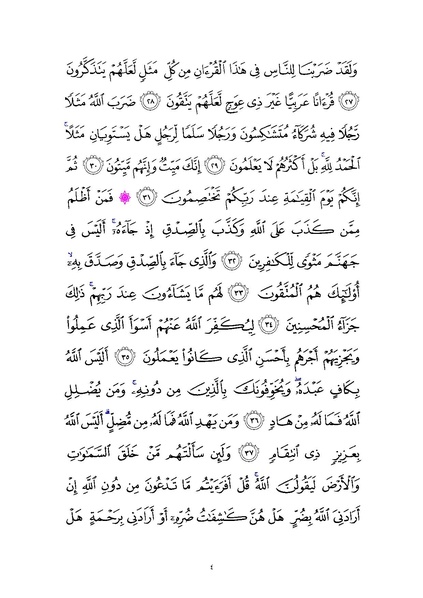 وَلَقَدْ ضَرَبْنَا لِلنَّاسِ فِي هَٰذَا الْقُرْءَانِ مِن كُلِّ مَثَلٍ لَّعَلَّهُمْ يَتَذَكَّرُونَ
﴿٢٧﴾ قُرْءَانًا عَرَبِيًّا غَيْرَ ذِي عِوَجٍ لَّعَلَّهُمْ يَتَّقُونَ ﴿٢٨﴾ ضَرَبَ اللَّهُ مَثَلًا
رَّجُلًا فِيهِ شُرَكَاءُ مُتَشَاكِسُونَ وَرَجُلًا سَلَمًا لِّرَجُلٍ هَلْ يَسْتَوِيَانِ مَثَلًا ۚ
الْحَمْدُ لِلَّهِ ۚ بَلْ أَكْثَرُهُمْ لَا يَعْلَمُونَ ﴿٢٩﴾ إِنَّكَ مَيِّتٌ وَإِنَّهُم مَّيِّتُونَ ﴿٣٠﴾ ثُمَّ
إِنَّكُمْ يَوْمَ الْقِيَامَةِ عِندَ رَبِّكُمْ تَخْتَصِمُونَ ﴿٣١﴾ ۞ فَمَنْ أَظْلَمُ
مِمَّن كَذَبَ عَلَى اللَّهِ وَكَذَّبَ بِالصِّدْقِ إِذْ جَاءَهُ ۚ أَلَيْسَ فِي
جَهَنَّمَ مَثْوًى لِّلْكَافِرِينَ ﴿٣٢﴾ وَالَّذِي جَاءَ بِالصِّدْقِ وَصَدَّقَ بِهِ ۙ
أُولَٰئِكَ هُمُ الْمُتَّقُونَ ﴿٣٣﴾ لَهُم مَّا يَشَاءُونَ عِندَ رَبِّهِمْ ۚ ذَٰلِكَ
جَزَاءُ الْمُحْسِنِينَ ﴿٣٤﴾ لِيُكَفِّرَ اللَّهُ عَنْهُمْ أَسْوَأَ الَّذِي عَمِلُوا
وَيَجْزِيَهُمْ أَجْرَهُم بِأَحْسَنِ الَّذِي كَانُوا يَعْمَلُونَ ﴿٣٥﴾ أَلَيْسَ اللَّهُ
بِكَافٍ عَبْدَهُ ۖ وَيُخَوِّفُونَكَ بِالَّذِينَ مِن دُونِهِ ۚ وَمَن يُضْلِلِ
اللَّهُ فَمَا لَهُ مِنْ هَادٍ ﴿٣٦﴾ وَمَن يَهْدِ اللَّهُ فَمَا لَهُ مِن مُّضِلٍّ ۗ أَلَيْسَ اللَّهُ
بِعَزِيزٍ ذِي انتِقَامٍ ﴿٣٧﴾ وَلَئِن سَأَلْتَهُم مَّنْ خَلَقَ السَّمَاوَاتِ
وَالْأَرْضَ لَيَقُولُنَّ اللَّهُ ۚ قُلْ أَفَرَءَيْتُم مَّا تَدْعُونَ مِن دُونِ اللَّهِ إِنْ
أَرَادَنِيَ اللَّهُ بِضُرٍّ هَلْ هُنَّ كَاشِفَاتُ ضُرِّهِ أَوْ أَرَادَنِي بِرَحْمَةٍ هَلْ
٤